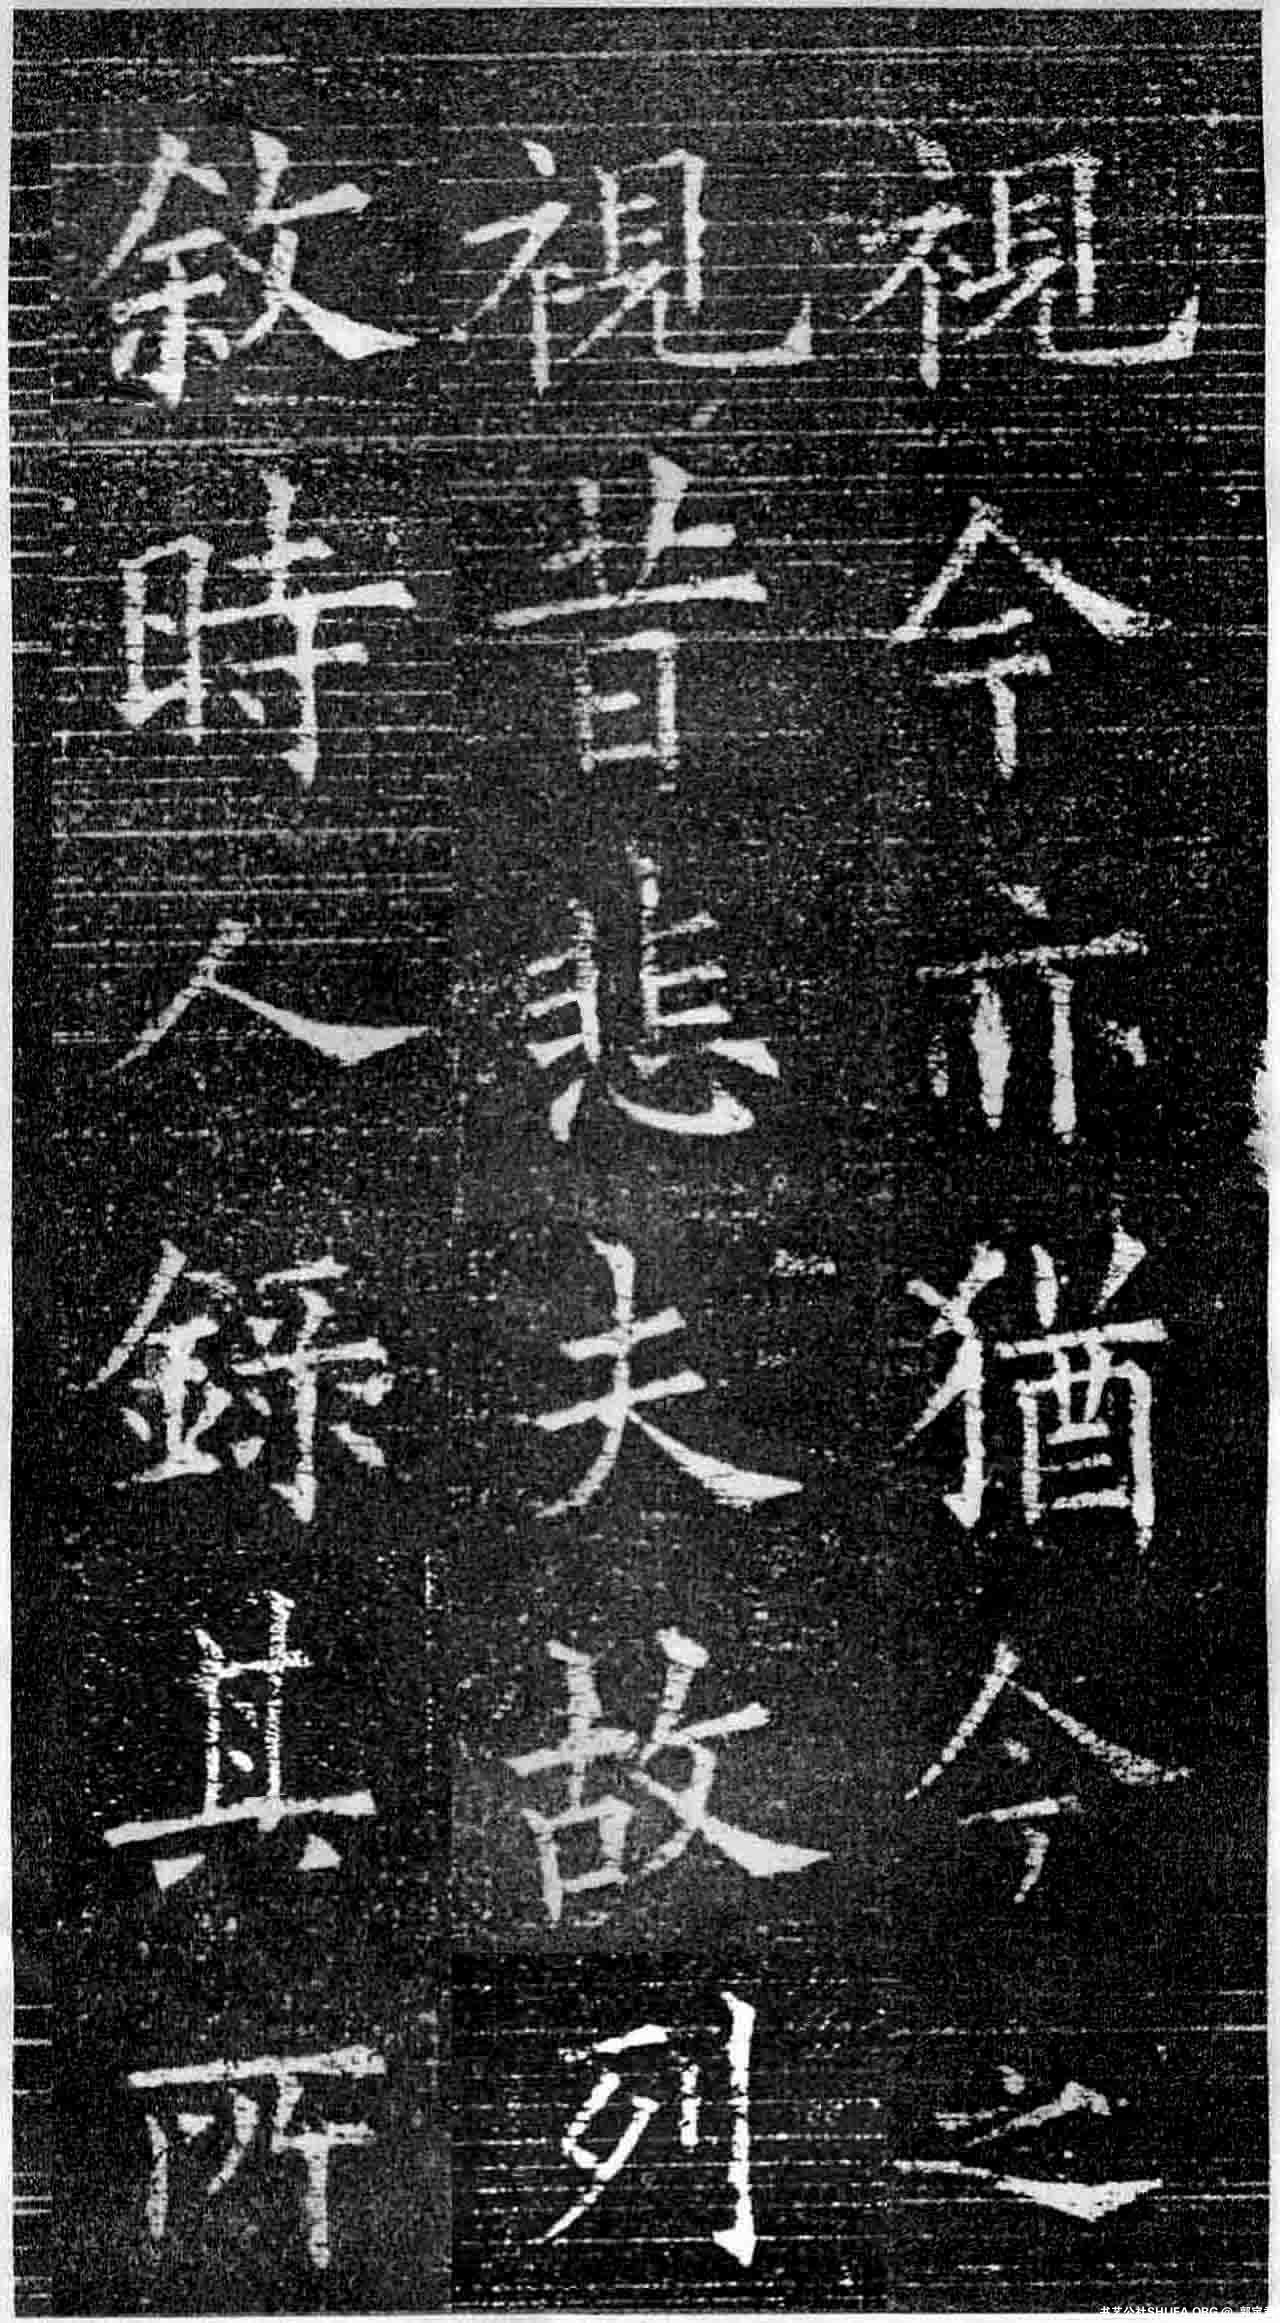 視今亦猶今之
視昔悲夫故列
敘時人錄其所
书艺公社SHUFA.ORG @